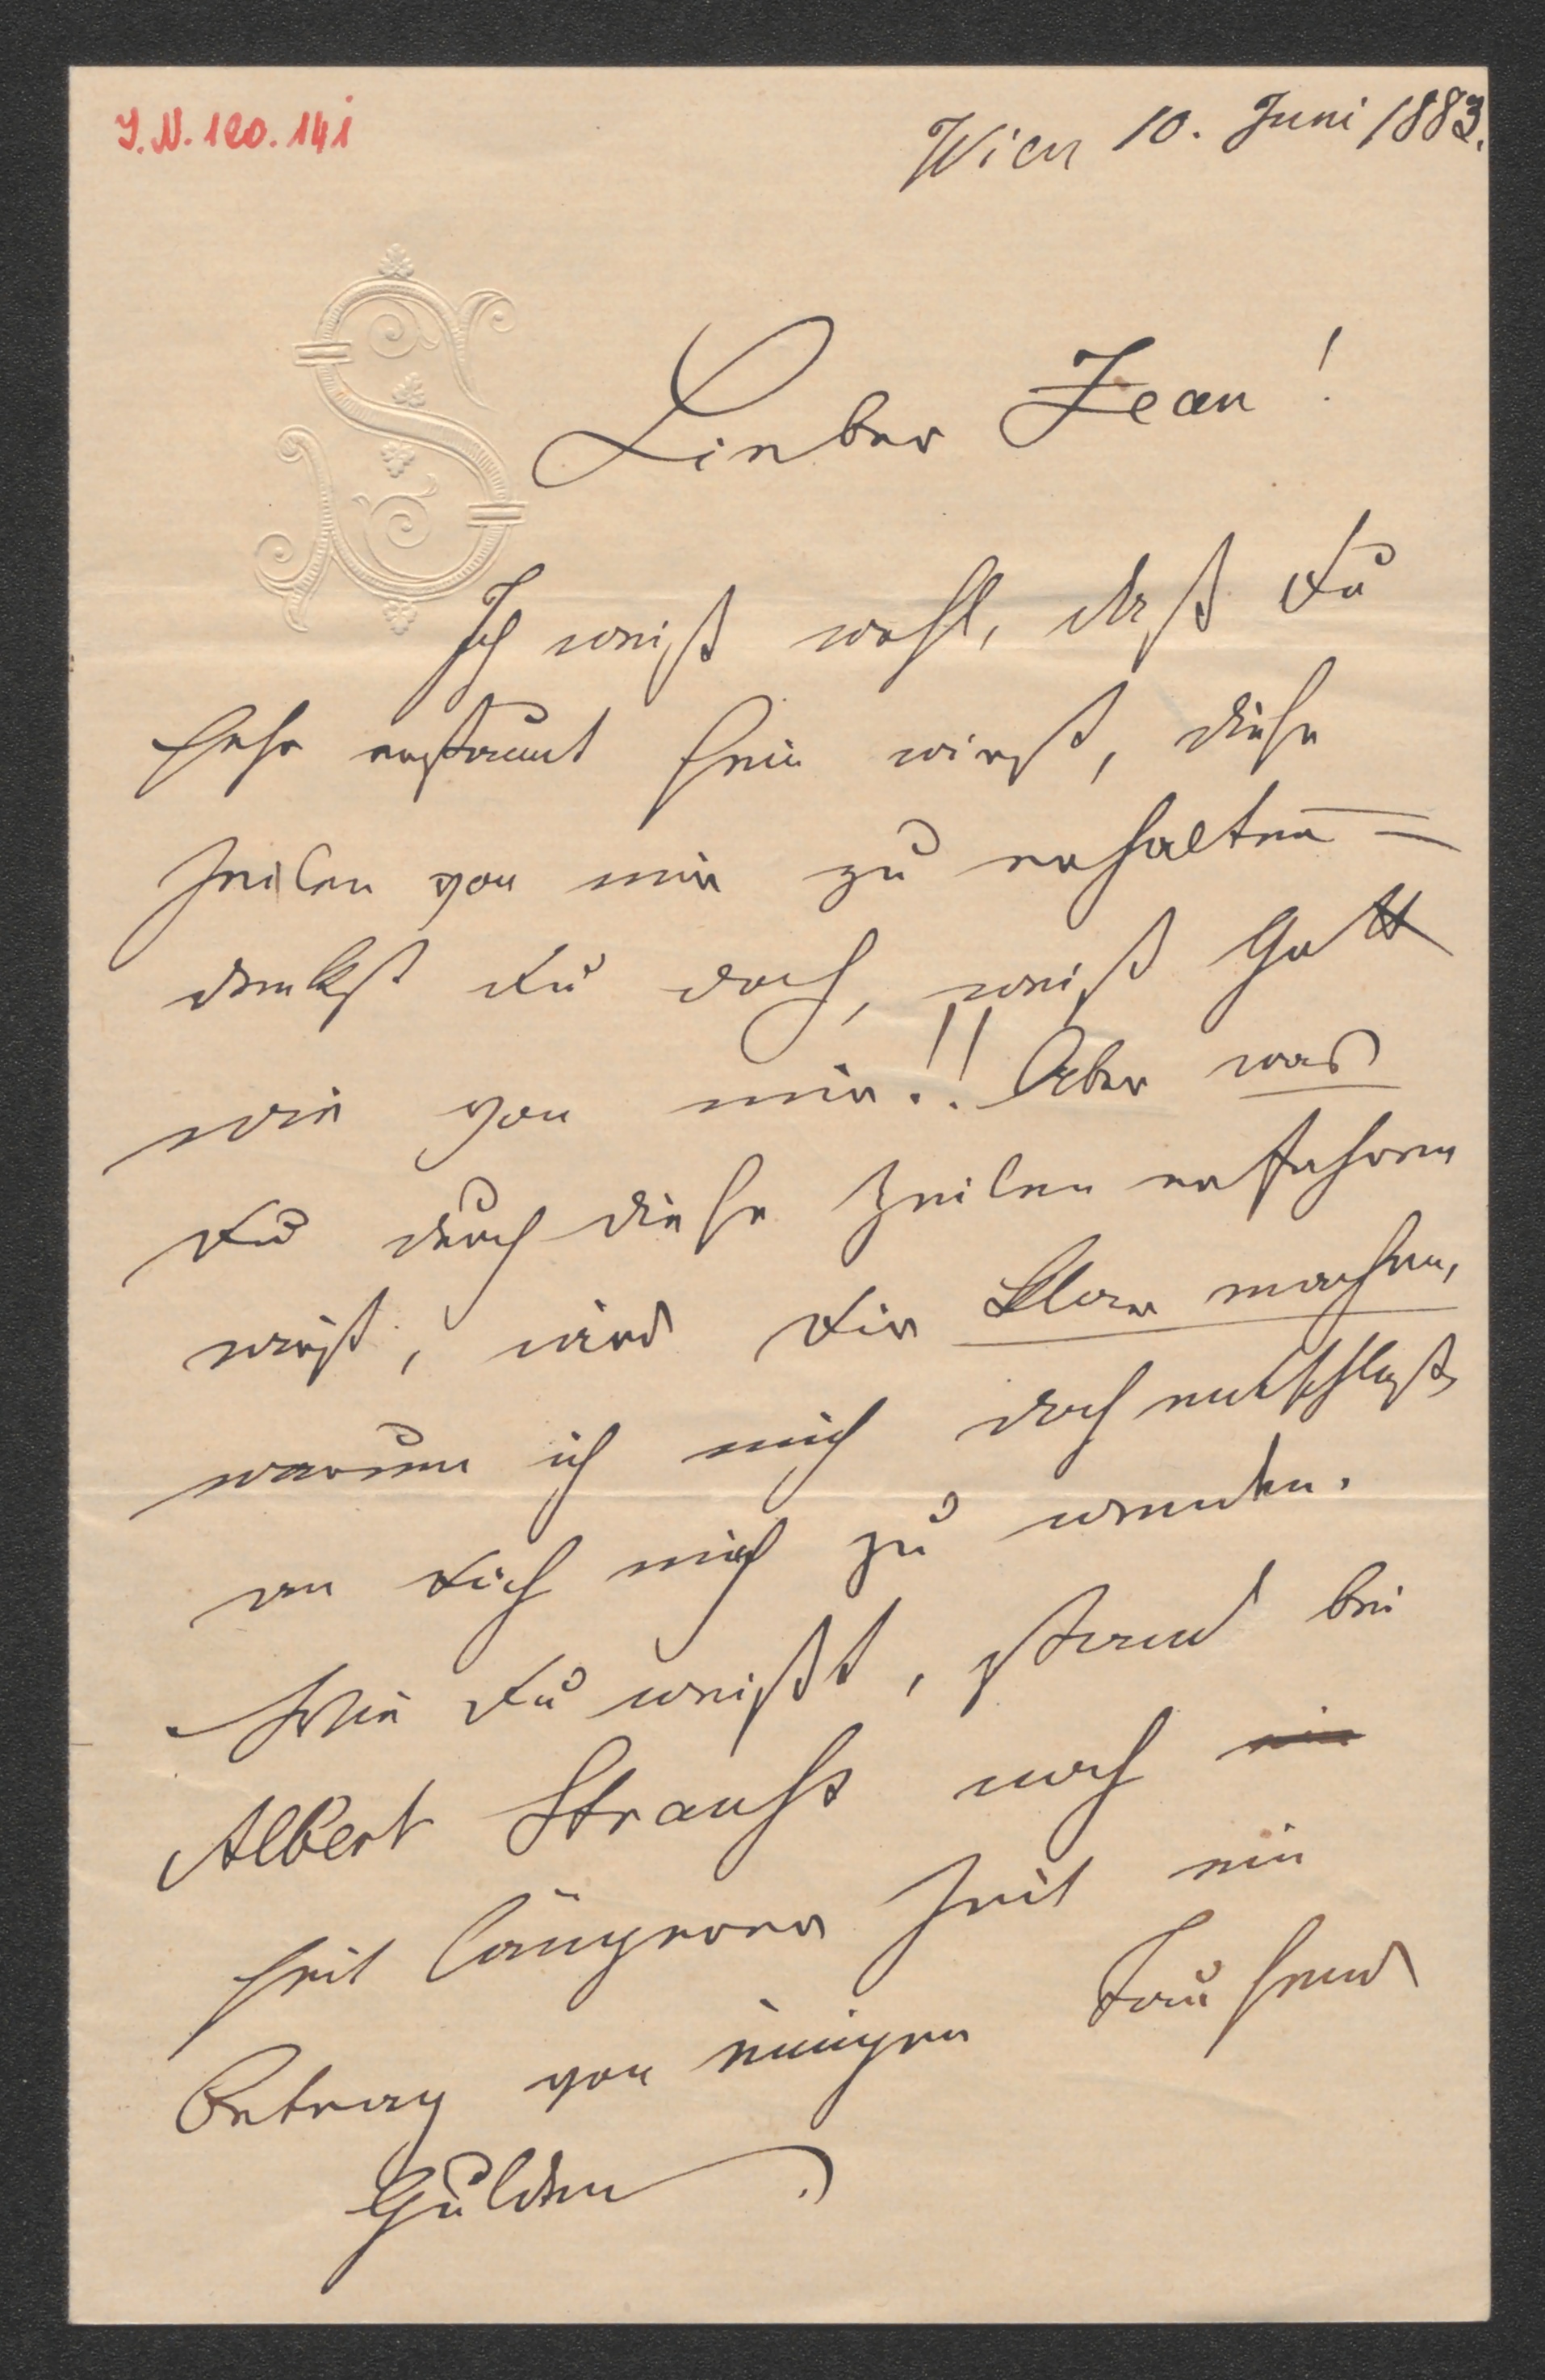 I.N. 120.141
Wien 10. Juni 1883.
Lieber Jean!
Ich weiß wohl, daß Du
sehr erstaunt sein wirst, diese
Zeilen von mir zu erhalten –
denkst Du doch, weiß Gott
wie von mir!! Aber was
Du durch diese Zeilen erfahren
wirst, wird Dir klar machen,
warum ich mich doch entschließe
an Dich mich zu wenden.
Wie Du weißt, stand bei
Albert Strauß noch ein
seit längerer Zeit ein
Betrag von einigen Tausend
Gulden